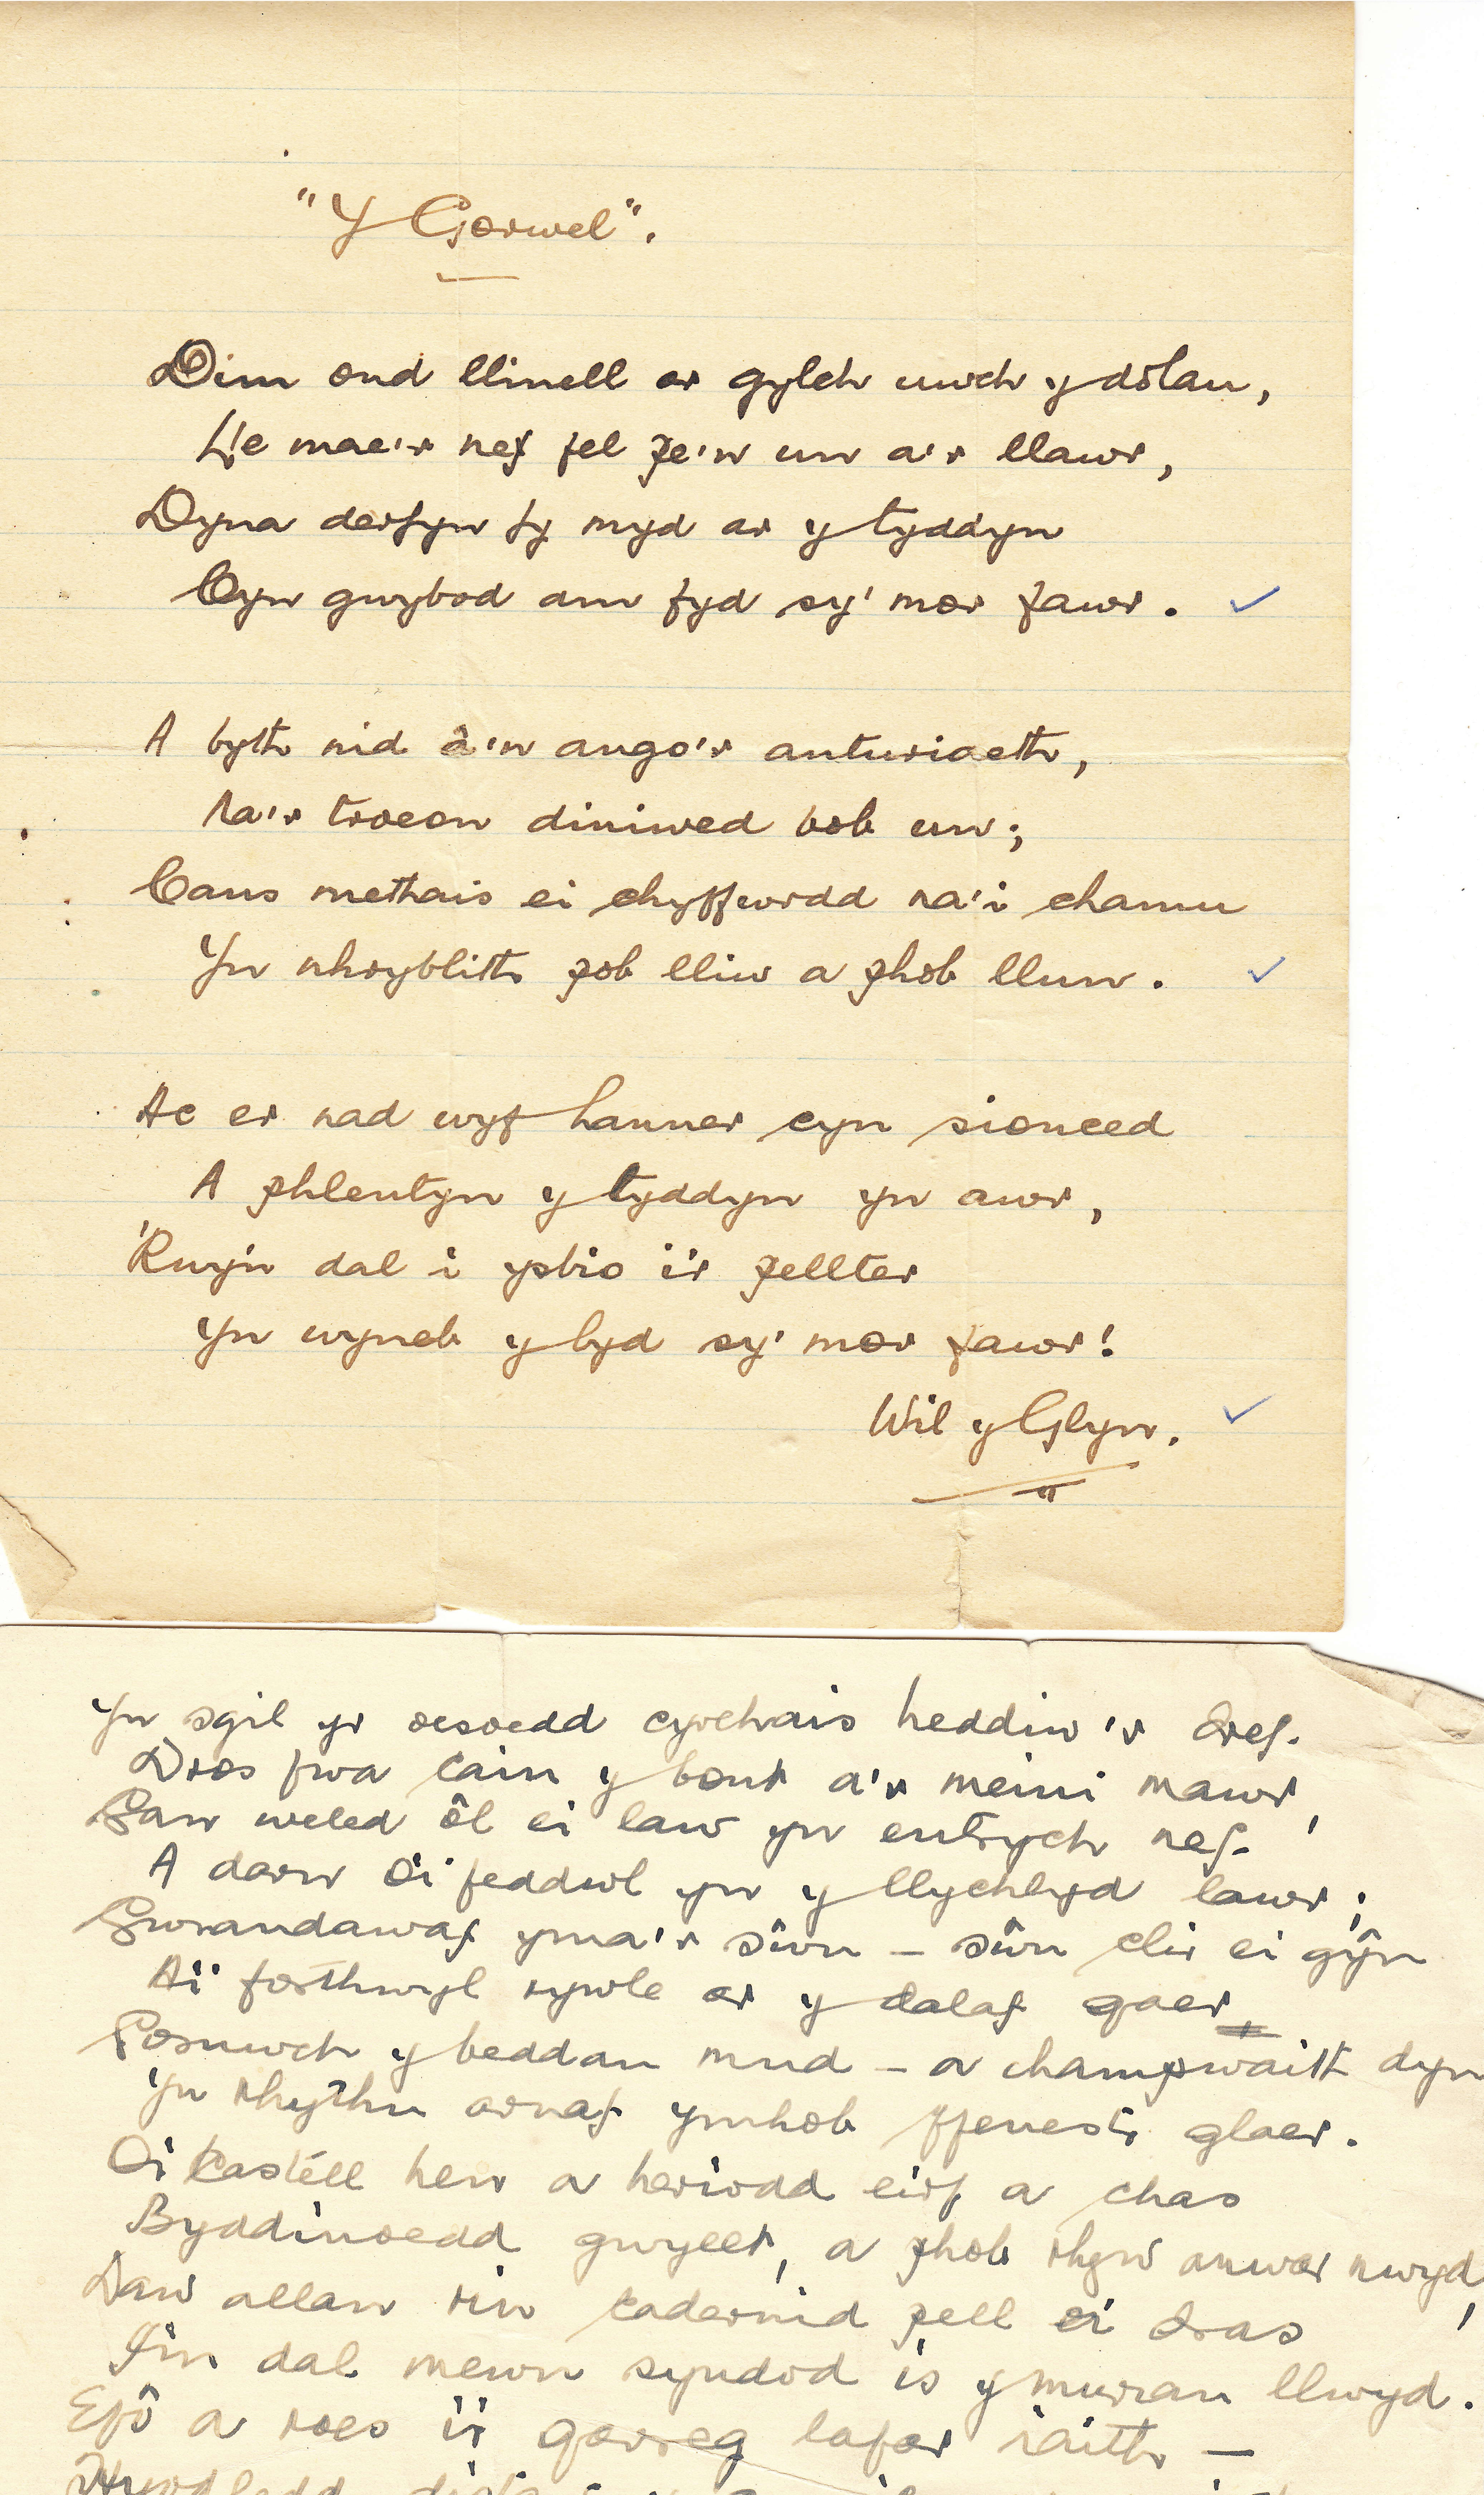 "Y Gorwel".
Dim ond llinell ar gylch uwch y dolau,
Lle mae'r nef fel pe'n un a'r llawr,
Dyna derfyn fy myd ar y tyddyn
Cyn gwybod am fyd sy' mor fawr.
A byth nid â'n ango'r anturiaeth,
Na'r troeon diniwed bob un;
Cans methais ei chyffwrdd na'i chamu
Yn nhryblith pob lliw a phob llun.
Ac er nad wyf hanner cyn sionced
A phlentyn y tyddyn yn awr,
'Rwy'n dal i ysbio i'r pellter
Yn wyneb y byd sy' mor fawr!
Wil y Glyn.
Yn sgil yr oesoedd cyrchais heddiw'r dref.
Dros fwa cain y bont a'r meini mawr,
Gan weled ôl ei law yn entrych nef.
A darn o'i feddwl yn y llychlyd lawr;
Gwrandawaf yma'r sŵn - sŵn clir ei gŷn
A'i forthwyl rywle ar y dalaf gaer,
Gosnwch y beddau mud - a champwaith dyn
Yn rhythu arnaf ymhob ffenestr glaer.
O'i Castell hen a heriodd eirf a chas
Byddinoedd gwyllt, a phob rhyw anwar nwyd,
Daw allan rin cadernid pell ei dras
I'm dal mewn syndod is y muriau llwyd.
Efô a roes i'r garreg lafar iaith -